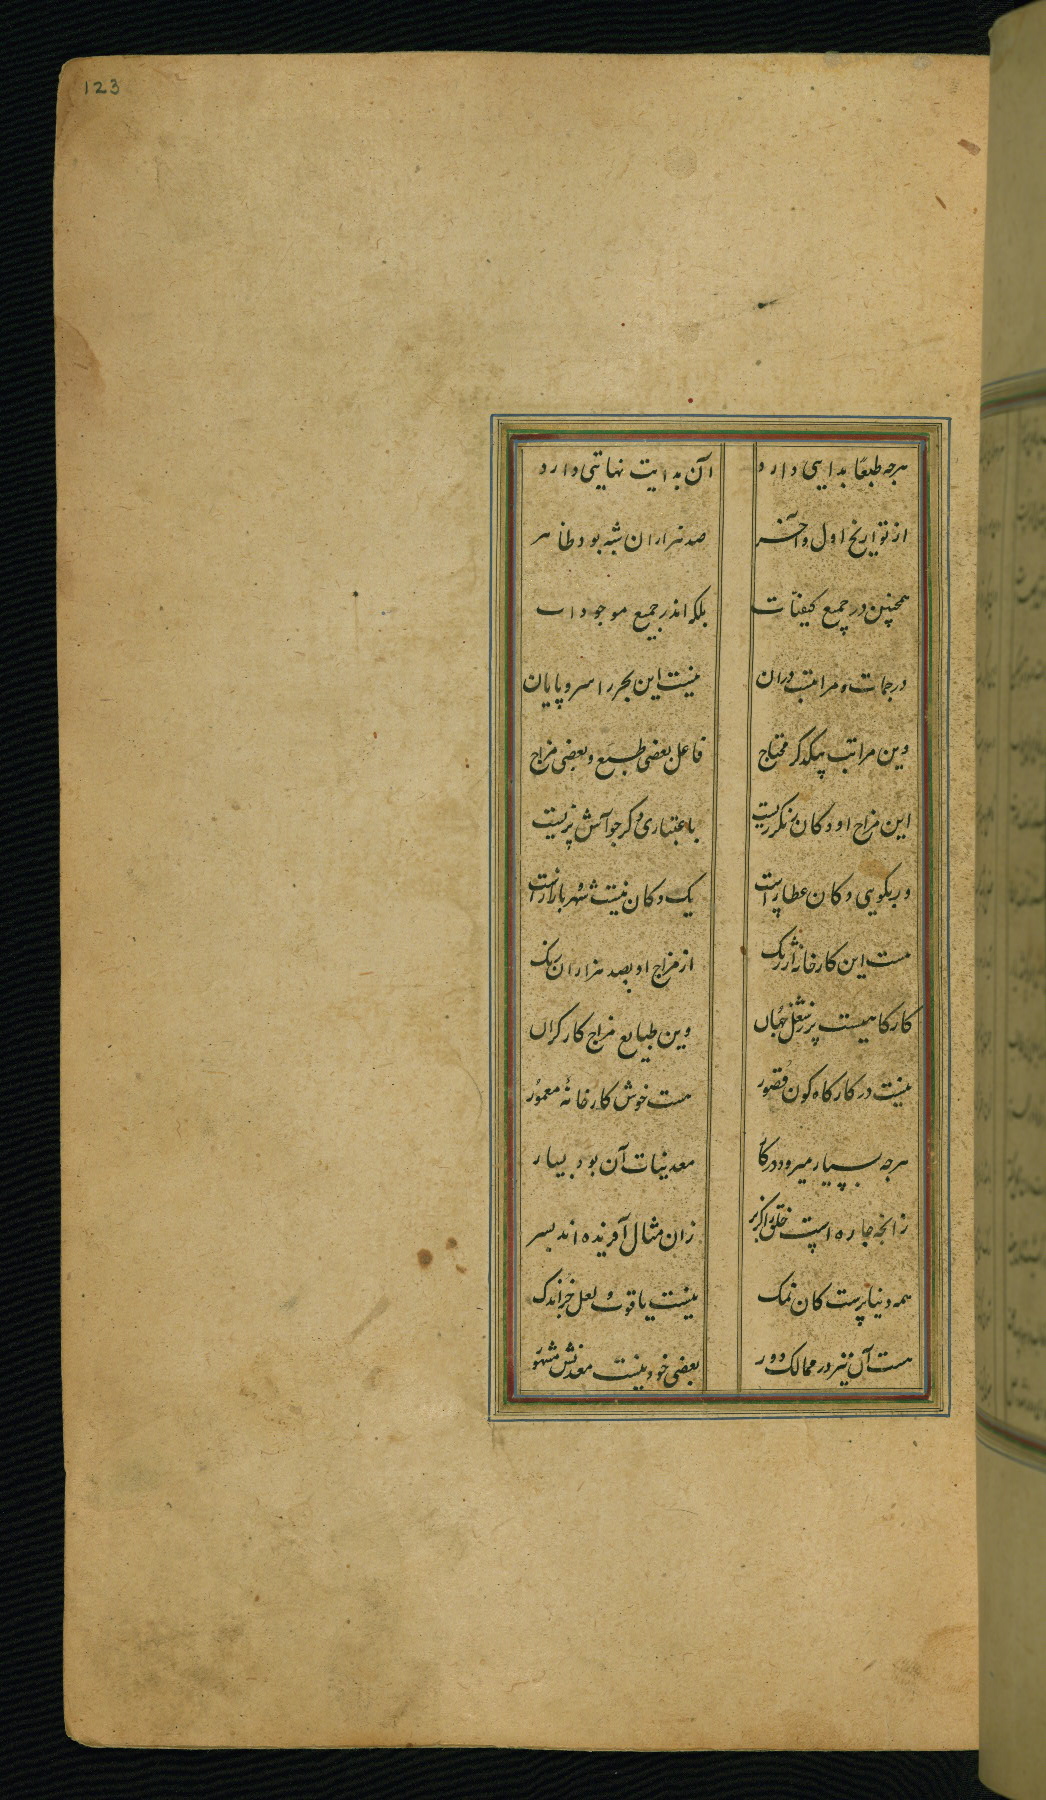 123
هرچه طبعا بدایتی دارد آن بدایت نهایتی دارد
از تواریخ اول و آخر صد هزاران شبه بود ظاهر
همچنین در جمیع کیفیات بلکه اندر جمیع موجودات
درجات و مراتب دران نیست این بحر را سر و پایان
وین مراتب بیکدکر محتاج فاعل بعضی طبع و بعضی مزاج
این مزاج او دکان باعتباری دکر چو آتش
ور بکویی دکان عطارست یک دکان نیست شهر بازارست
هست این کارخانه از مزاج او بصد هزاران رنک
کارکاهیست پر ز شغل جهان وین طبایع مزاج کارکران
نیست در کارکاه کون قصور هست خوش کارخانهٔ معمور
هرجه بسیار میرود در کار معدنیات آن بود بسیار
زانجه جاره است خلق را زان مثال آفریده اند
همه دنیا پرست کان نمک نیست یاقوت و لعل جز اندک
هست آن نیز در ممالک دور بعضی خود نیست معدنش مشهور